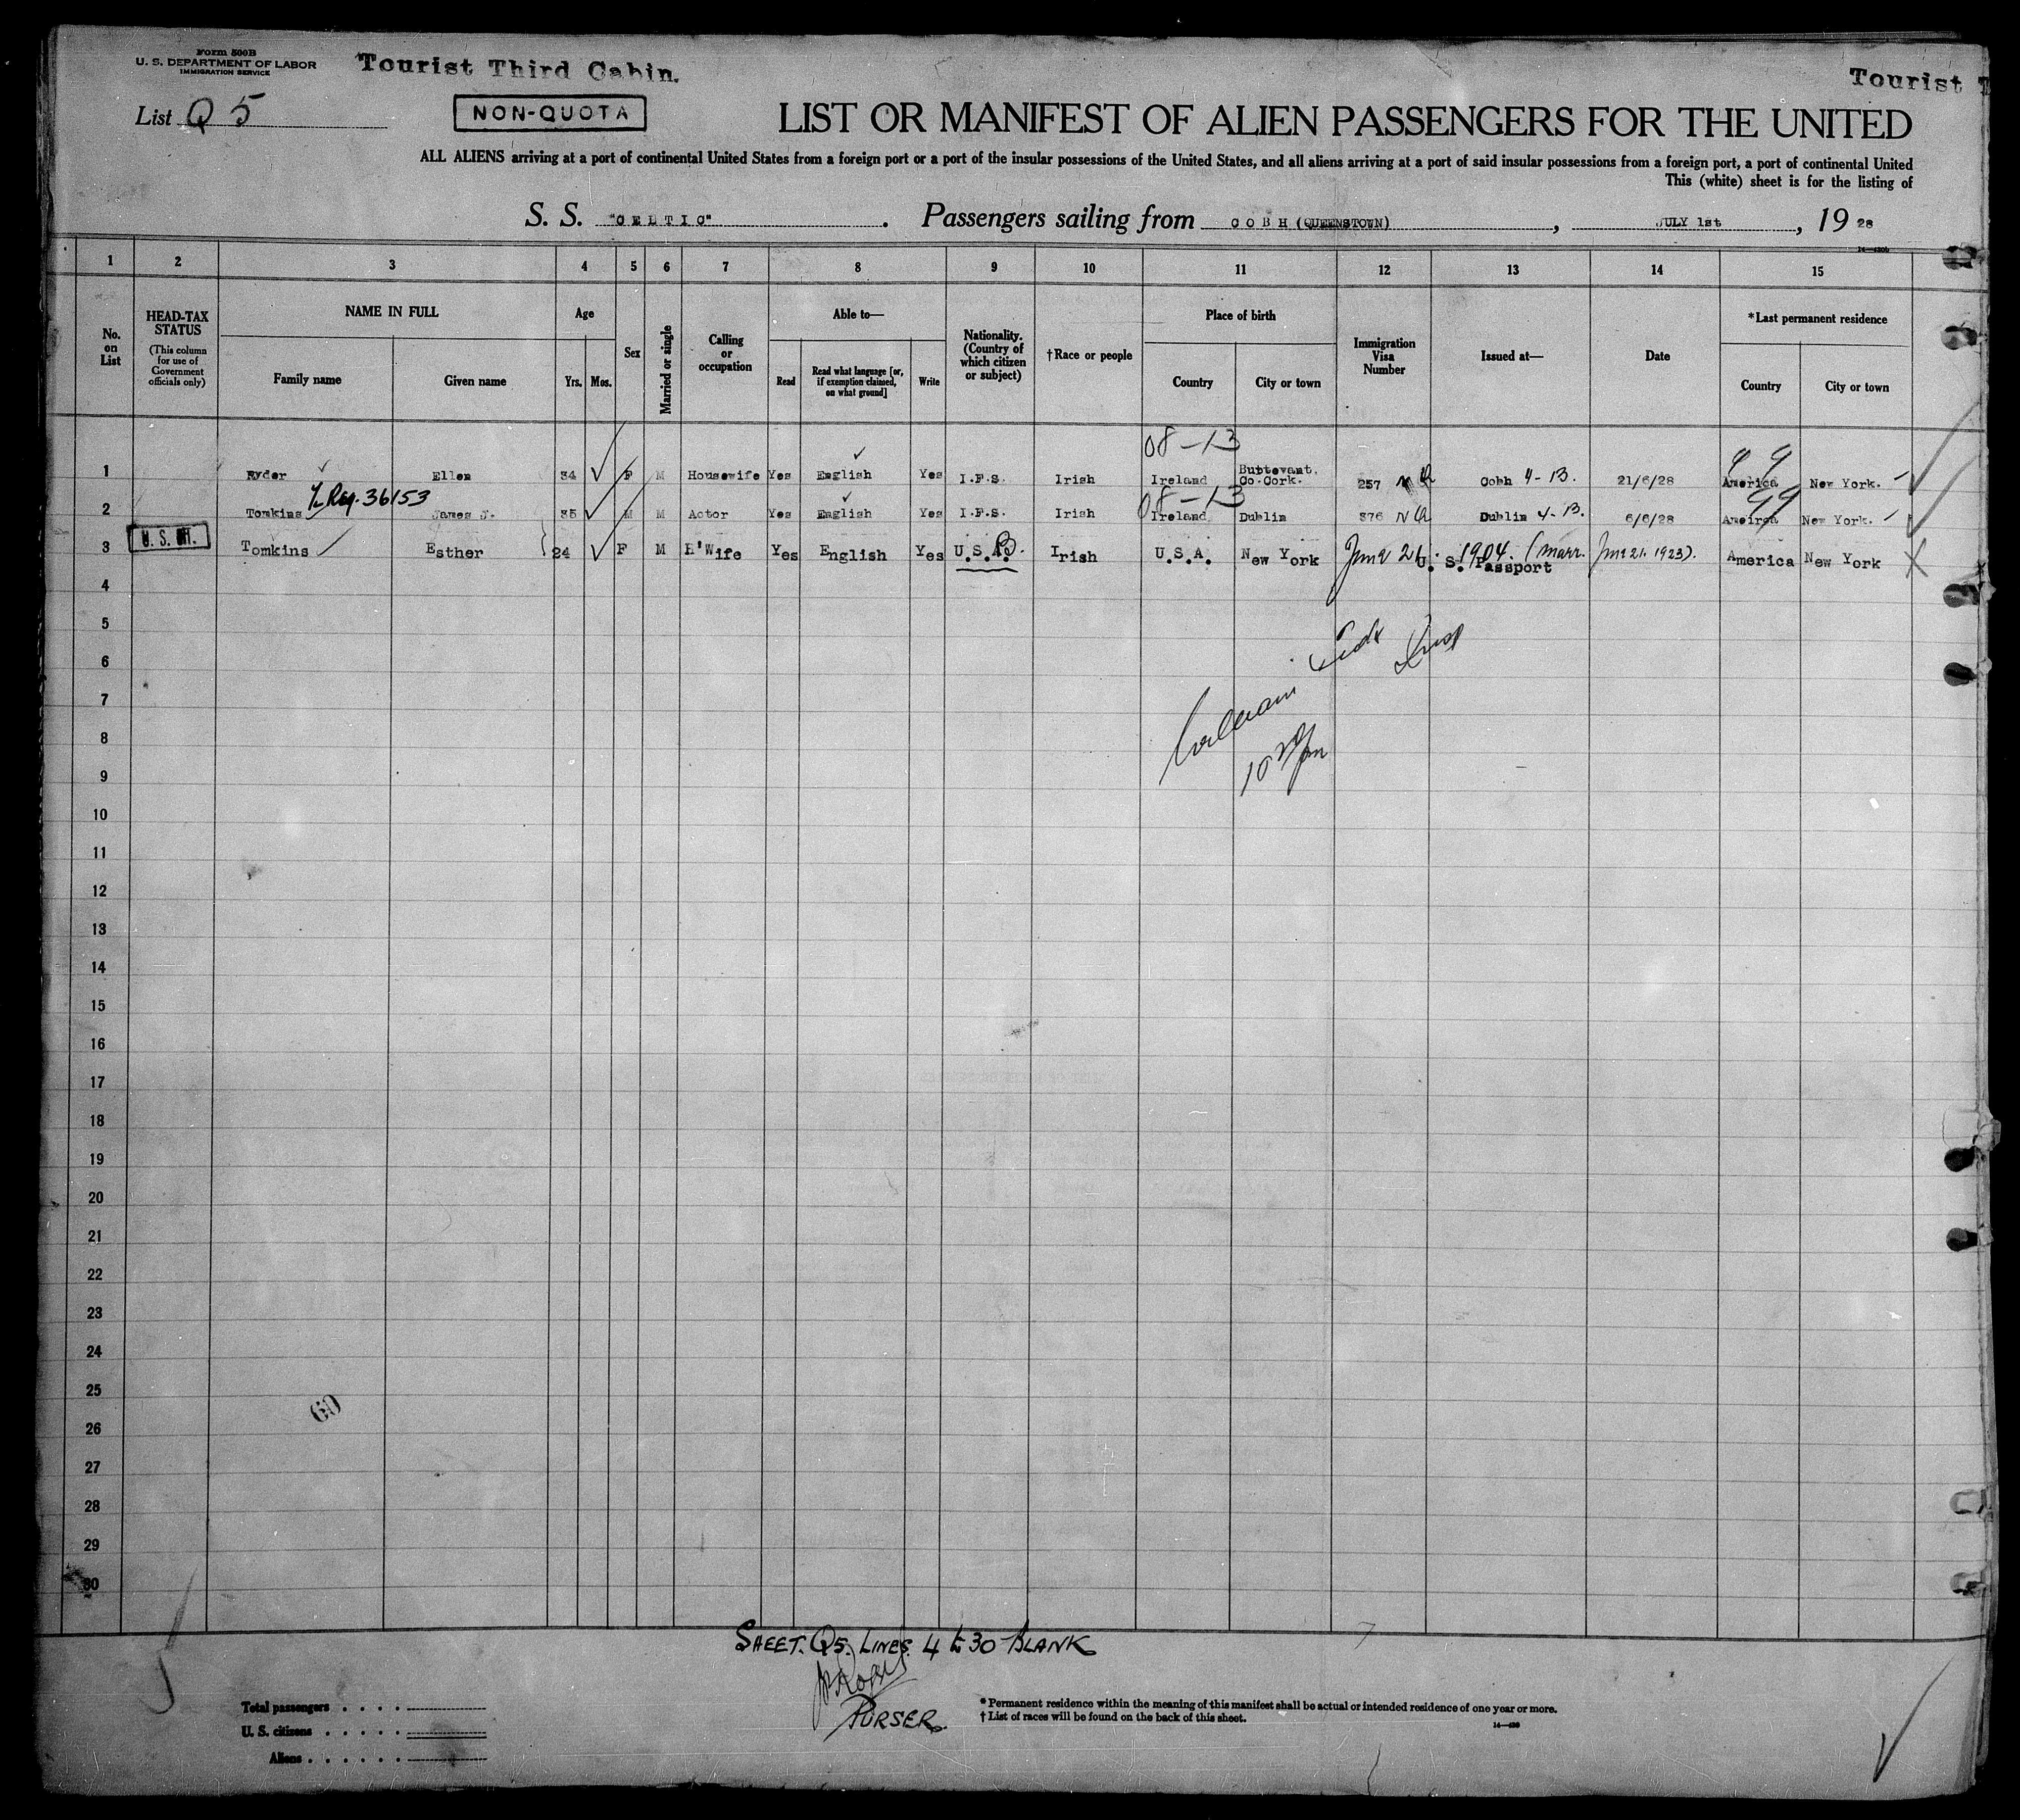 Form 500B
U. S. DEPARTMENT OF LABOR
IMMIGRATION SERVICE
Tourist Third Cabin.
Tourist T
List Q 5
NON-QUOTA
LIST OR MANIFEST OF ALIEN PASSENGERS FOR THE UNITED
ALL ALIENS arriving at a port of continental United States from a foreign port or a port of the insular possessions of the United States, and all aliens arriving at a port of said insular possessions from a foreign port, a port of continental United
This (white) sheet is for the listing of
S. S. "CELTIC". Passengers sailing from COBH (QUEENSTOWN), JULY 1st, 19 28
1 2 3 4 5 6 7 8 9 10 11 12 13 14 15
No. on List
HEAD-TAX STATUS
(This column for use of Government officials only)
NAME IN FULL
Family name Given name
Age
Yrs. Mos.
Sex
Married or single
Calling or occupation
Able to—
Read
Read what language [or, if exemption claimed, on what ground]
Write
Nationality. (Country of which citizen or subject)
†Race or people
Place of birth
Country City or town
Immigration Visa Number
Issued at—
Date
*Last permanent residence
Country City or town
08-13
1 Ryder Ellen 34 F M Housewife Yes English Yes I.F.S. Irish Ireland Buttevant. Co.Cork. 257 Cobh 4-B. 21/6/28 America New York.
Reg. 36153
08-13
2 Tomkins James J. 35 M M Actor Yes English Yes I.F.S. Irish Ireland Dublin 376 Dublin 4-B. 6/6/28 Ameirca New York.
3 Tomkins Esther 24 F M H'Wife Yes English Yes U.S.A. B. Irish U.S.A. New York June 21. 1904. (marr. June 21. 1923). U. S. Passport America New York
4
5
6
7
8
9
10
11
12
13
14
15
16
17
18
19
20
21
22
23
24
25
60
26
27
28
29
30
SHEET. Q5. LINES. 4 to 30 BLANK
PURSER.
Total passengers
U. S. citizens
Aliens
* Permanent residence within the meaning of this manifest shall be actual or intended residence of one year or more.
† List of races will be found on the back of this sheet.